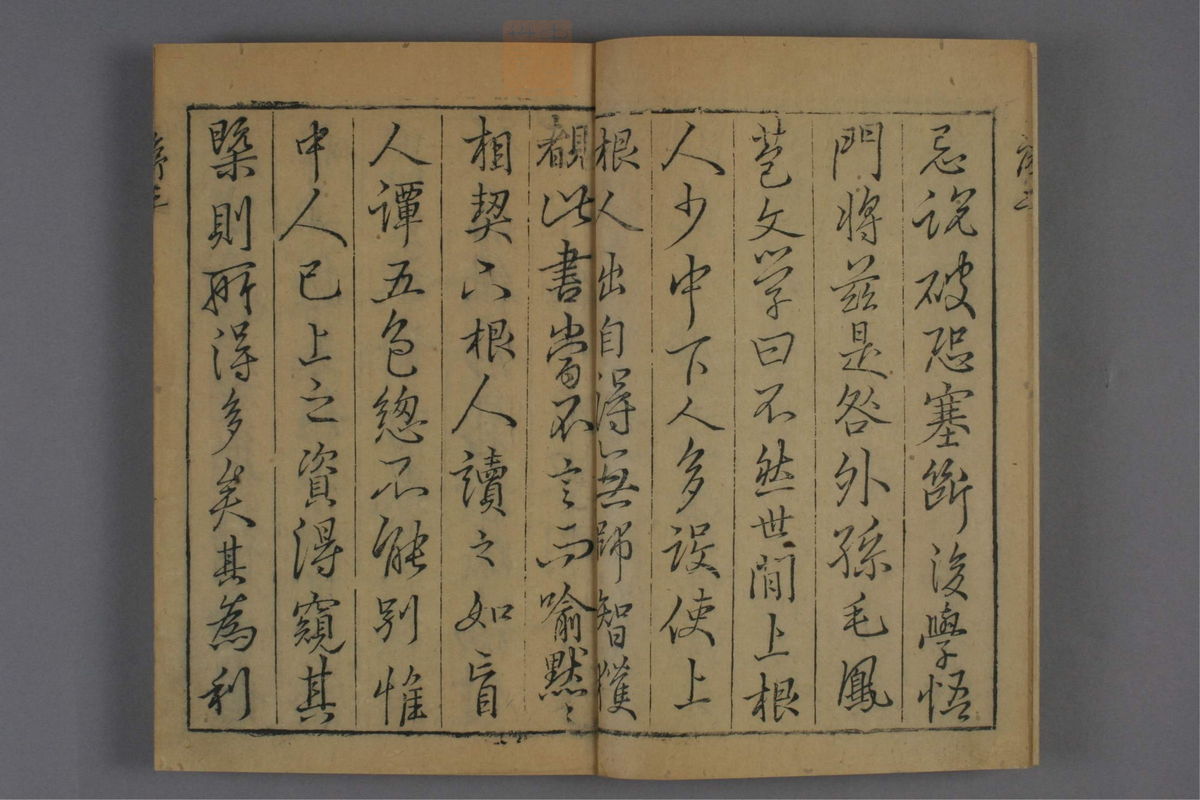 忌說破恐塞斷後學悟
門將茲是咎外孫毛鳳
苞文學曰不然世間上根
人少中下人多設使上
根人出自得無師智獲
覩此書當不言而喻默〻
相契六根人讀之如盲
人譚五色總不能別惟
中人已上之資得窺其
槩則所得多矣其為利
序三